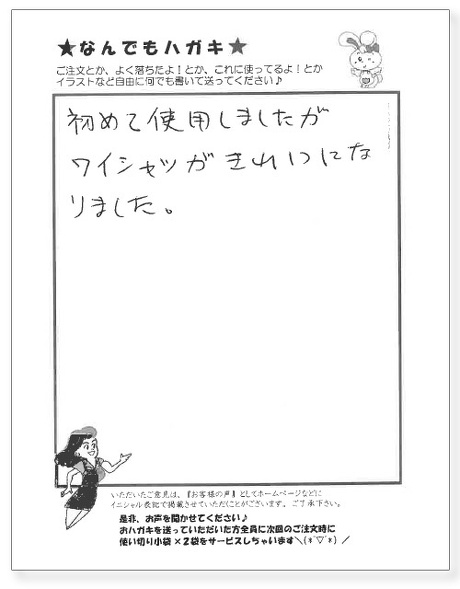 ★なんでもハガキ★
ご注文とか、よく落ちたよ！とか、これに使ってるよ！とか
イラストなど自由に何でも書いて送ってください♪
初めて使用しましたが
ワイシャツがきれいにな
りました。
いただいたご意見は、『お客様の声』としてホームページなどに
イニシャル表記で掲載させていただことがございます。ご了承下さい。
是非、お声を聞かせてください♪
おハガキを送っていただいた方全員に次回のご注文時に
使い切り小袋×2袋をサービスしちゃいます＼(*´▽`*)／